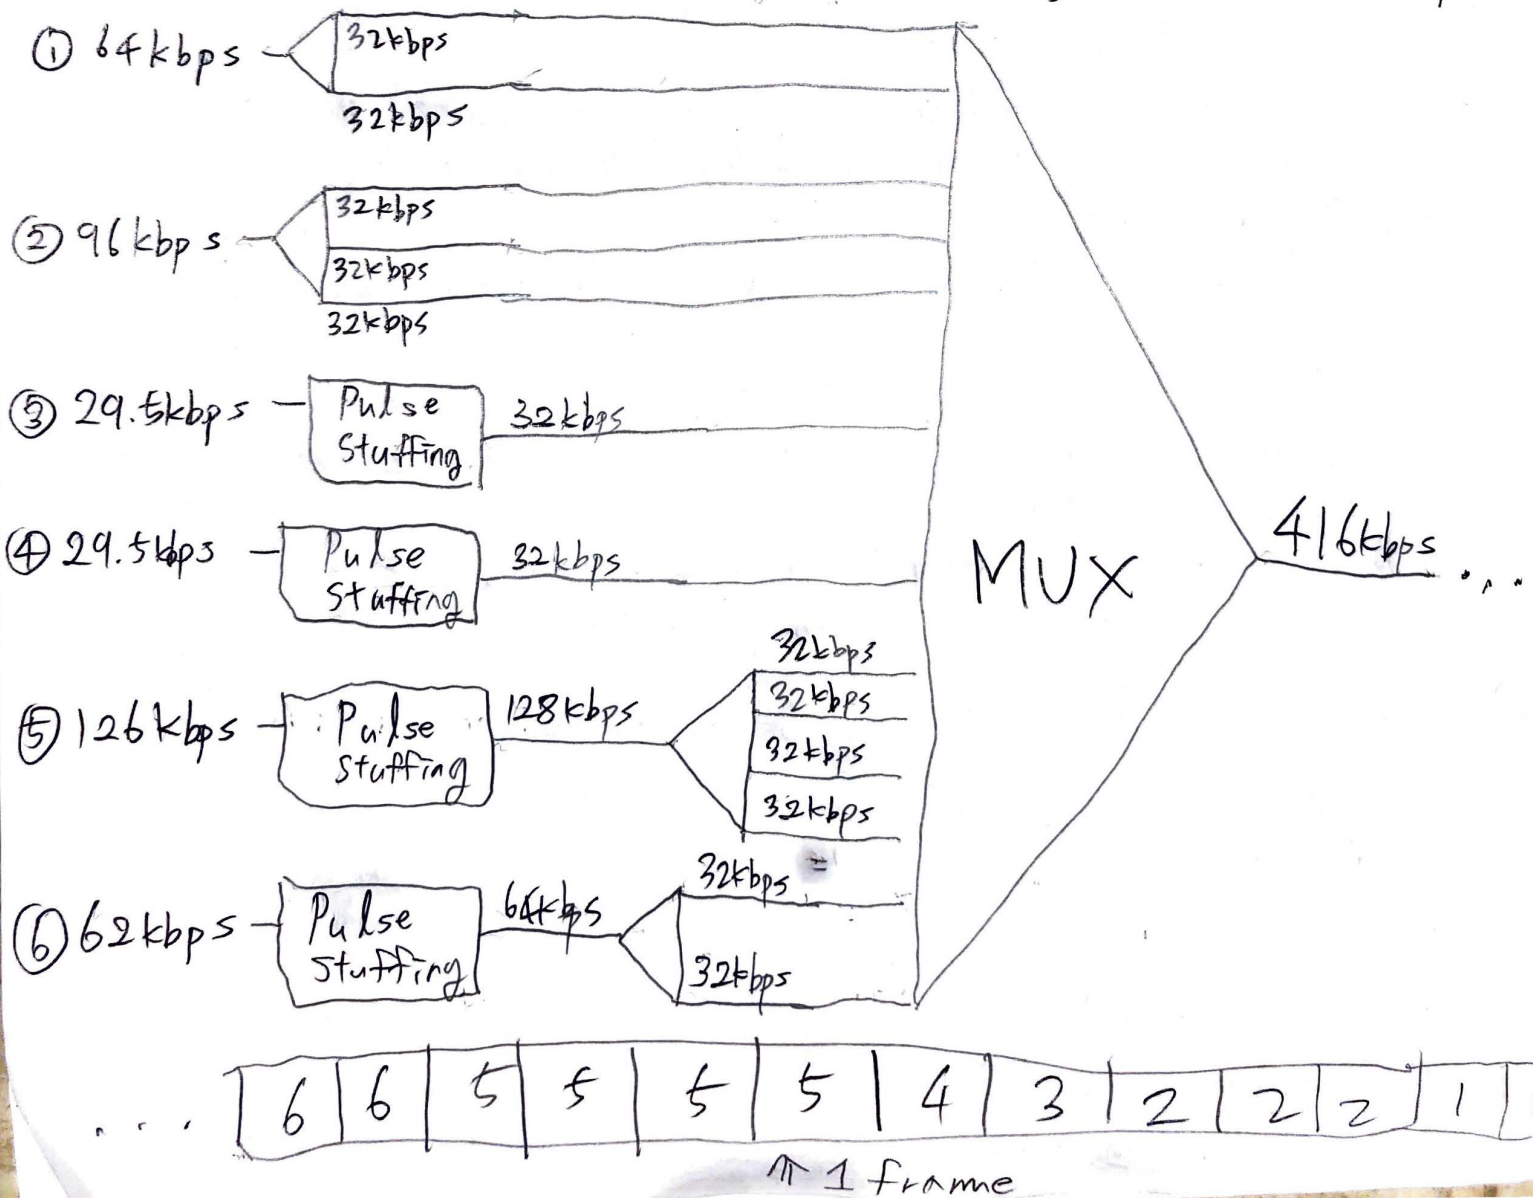 ① 64kbps
32kbps
32kbps
② 96kbps
32kbps
32kbps
32kbps
③ 29.5kbps
Pulse
Stuffing
32kbps
④ 29.5kbps
Pulse
Stuffing
32kbps
MUX
416kbps ...
⑤ 126kbps
Pulse
Stuffing
128kbps
32kbps
32kbps
32kbps
32kbps
⑥ 62kbps
Pulse
Stuffing
64kbps
32kbps
32kbps
... 6 6 5 5 5 5 4 3 2 2 2 1
⇑ 1 frame